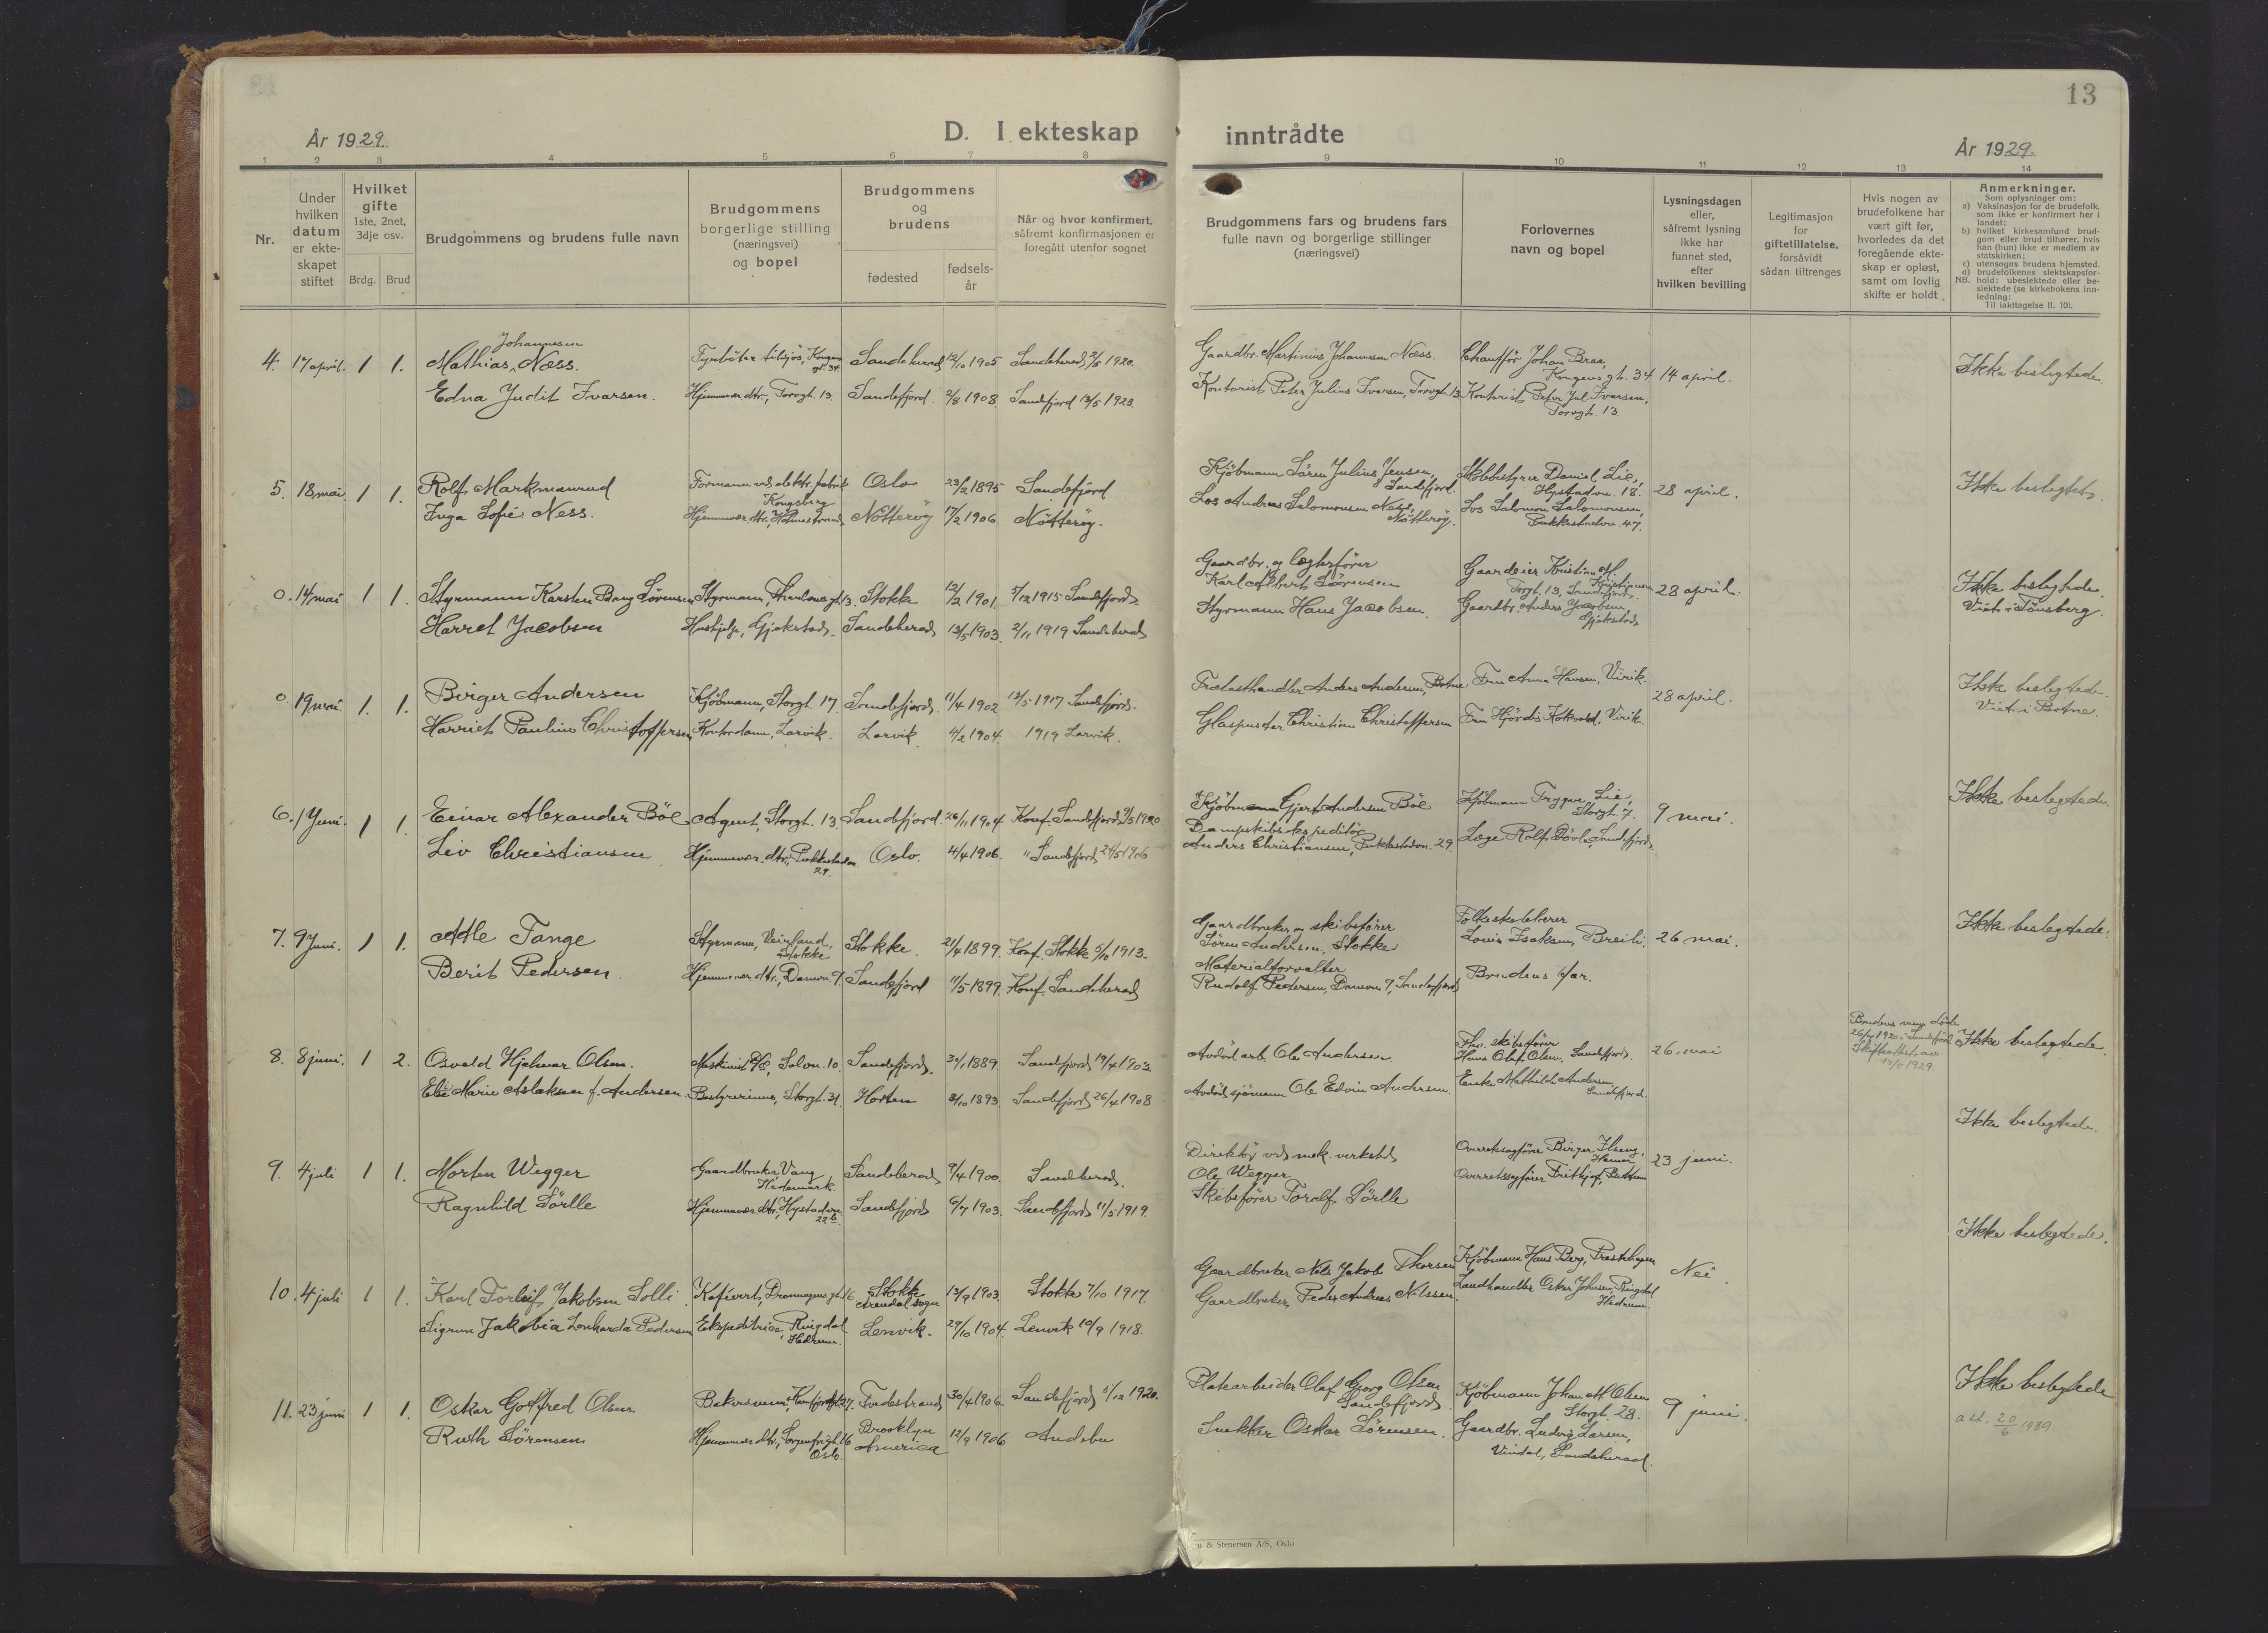 13
År 1929.
D. I ekteskap inntrådte
År 1929.
1 2 3 4 5 6 7 8 9 10 11 12 13 14
Nr.
Under hvilken datum er ekteskapet stiftet
Hvilket gifte
1ste, 2net, 3dje osv.
Brdg. Brud
Brudgommens og brudens fulle navn
Brudgommens borgerlige stilling (næringsvei) og bopel
Brudgommens og brudens
fødested
fødselsår
Når og hvor konfirmert, såfremt konfirmasjonen er foregått utenfor sognet
Brudgommens fars og brudens fars fulle navn og borgerlige stillinger (næringsvei)
Forlovernes navn og bopel
Lysningsdagen eller, såfremt lysning ikke har funnet sted, efter hvilken bevilling
Legitimasjon for giftetillatelse, forsåvidt sådan tiltrenges
Hvis nogen av brudefolkene har vært gift før, hvorledes da det foregående ekteskap er opløst, samt om lovlig skifte er holdt
Anmerkninger.
Som oplysninger om:
a) Vaksinasjon for de brudefolk. som ikke er konfirmert her i landet;
b) hvilket kirkesamfund brudgom eller brud tilhører, hvis han (hun) ikke er medlem av statskirken;
c) utensogns brudens hjemsted.
d) brudefolkenes slektskapsforhold: ubeslektede eller beslektede (se kirkebokens innledning:
NB. Til iakttagelse II. 10).
4. 17 april. 1 1. Mathias Johannesen Næss. Fyrbøter tilsjøs, Kongens gt. 34 Sandeherad 12/10 1905 Sandeherad 2/5 1920. Gaardbr. Martinius Johannesen Næss. Chauffør Johan Braa, Kongens gt. 34 14 april. Ikke beslegtede
Edna Judit Ivarsen. Hjemmev. dtr., Torvgt. 13. Sandefjord 2/8 1908. Sandefjord 13/5 1923. Kontorist Peter Julius Ivarsen, Torvgt. 13. Kontorist Peter Jul. Ivarsen, Torvgt. 13.
5. 18 mai 1 1. Rolf Markmanrud Formann ved elektr. fabrik Kongsberg Oslo 23/2 1895 Sandefjord Kjøbmann Søren Julius Jensen, Sandefjord. Skolebestyrer Daniel Lie, Hystadvn. 18. 28 april. Ikke beslegtet
Inga Sofie Ness. Hjemmevær. dtr., Holmestrand Nøtterøy 17/2 1906. Nøtterøy. Los Andreas Salomonsen Ness, Nøtterøy. Los Salomon Salomonsen, Pukkestadvn. 47.
0. 14 mai 1 1. Styrmann Karsten Bang Sørensen Styrmann, 13. Stokke 12/2 1901. 5/12 1915 Sandefjord. Gaardbr. og lægterfører Karl Albert Sørensen Gaardeier Kristian M. Kristiansen Torgt. 13, Sandefjord. 28 april. Ikke beslegtede. Viet i Tønsberg.
Harret Jacobsen Hushjelp, Gjekstad. Sandeherad 13/5 1903. 2/11 1919 Sandeherad Styrmann Hans Jacobsen. Gaardbr. Anders Jacobsen, Gjekstad
0. 19 mai. 1. 1. Birger Andersen Kjøbmann, Storgt. 17. Sandefjord. 11/4 1902 13/5 1917 Sandefjord. Trælasthandler Anders Andersen, Botne Fru Anna Hansen, Virik. 28 april. Ikke beslegtede. Viet i Botne.
Harriet Pauline Christoffersen Kontordame, Larvik. Larvik 4/2 1904. 1919 Larvik. Glaspuster Christian Christoffersen Fru Hjørdis, Virik.
6. 1 Juni. 1 1. Einar Alexander Bøe Agent, Storgt. 13. Sandefjord. 26/11 1904 Konf. Sandefjord 9/5 1920 Kjøbmann Gjert Andersen Bøe Kjøbmann Trygve Lie, Storgt. 7. 9 mai. Ikke beslegtede.
Liv Christiansen Hjemmevær. dtr., Pukkestadvn. 29. Oslo. 4/4 1906. " Sandefjord 24/5 1906 Dampskibsekspeditør Anders Christiansen, Pukkestadvn. 29. Læge Rolf Bøvle, Sandefjord.
7. 9 Juni. 1 1. Atle Tange Styrmann, Veirland, Stokke Stokke. 21/4 1899. Konf. Stokke 5/10 1913. Gaardbruker og skibsfører Søren Andersen, Stokke Folkeskolelærer Louis Isaksen, Breili. 26 mai. Ikke beslegtede.
Berit Pedersen. Hjemmevær. dtr., Damvn. 7. Sandefjord 11/5 1899. Konf. Sandeherad Materialforvalter Rudolf Pedersen, Damvn 7, Sandefjord Brudens far.
8. 8 juni. 1 2. Osvald Hjelmar Olsen. Maskinist, Solvn. 10. Sandefjord. 31/1 1889. Sandefjord 19/4 1903. Avdød arb. Ole Andersen Fhv. skibsfører Hans Olaf Olsen, Sandefjord. 26. mai Brudens mann døde 26/4 1920 i Sandefjord Skifteattest av 15/5 1929. Ikke beslegtede.
Elie Marie Aslaksen f. Andersen. Bestyrerinne, Storgt. 31. Horten 8/10 1893. Sandefjord 26/4 1908 Avdød sjømann Ole Edvin Andersen. Enke Mathilde Andersen, Sandefjord.
9. 4 juli 1 1. Morten Wegger Gaardbruker, Vang Hedemark. Sandeherad 9/4 1900. Sandeherad. Direktør ved mek. verksted Ole Wegger Overretssagfører Birger, Hamar 23 juni. Ikke beslegtede.
Ragnhild Sørlle Hjemmevær. dtr., Hystadvn. 22 b. Sandefjord 6/7 1903. Sandefjord 11/5 1919. Skibsfører Toralf Sørlle Overretssagfører Frithjof Bettum
10. 4 juli 1 1. Karl Torleif Jakobsen Solli. Kafévert, Dronningens gt. 16 Stokke 13/9 1903. Stokke 7/10 1917. Gaardbruker Nils Jakob Thorsen Kjøbmann Hans Berg, Prestehagen Nei. Ikke beslegtede.
Sigrun Jakobia Lenharda Pedersen Ekspeditrice, Ringdal Hedrum. sogn Lenvik. 29/10 1904. Lenvik 10/9 1918. Gaardbruker Peder Andreas Nilssen. Landhandler Oskar Johnsen, Ringdal Hedrum.
11. 23 juni 1 1. Oskar Gotfred Olsen Bakersvenn, 27. Tvedestrand 30/4 1906. Sandefjord 5/12 1920. Platearbeider Olaf Georg Olsen Sandefjord. Kjøbmann Johan M. Olsen Storgt. 28. 9 juni. Ikke beslegtede att. 20/6 1989
Ruth Sørensen Hjemmevær. dtr., Sorgenfrigt. 16 Oslo. Brooklyn America 12/9 1906 Andebu Snekker Oskar Sørensen. Gaardbr. Ludvig Larsen, Vindal, Sandeherad.
& Stenersen A/S, Oslo